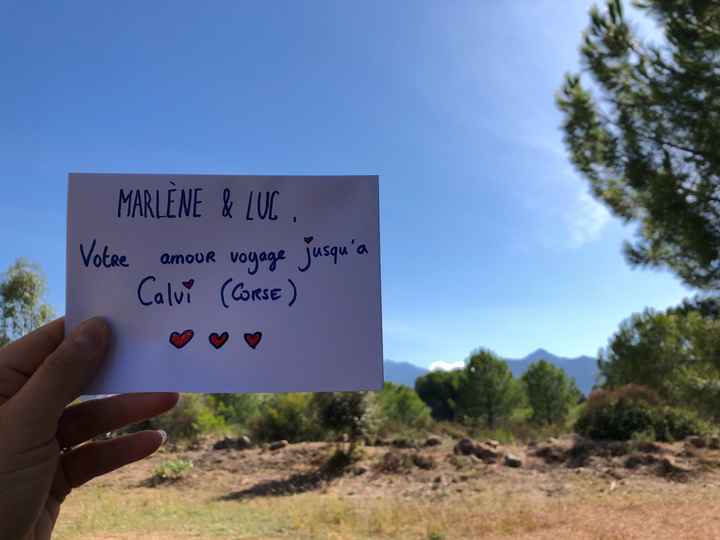 MARLÈNE & LUC,
Votre amour voyage jusqu'a
Calvi (CORSE)